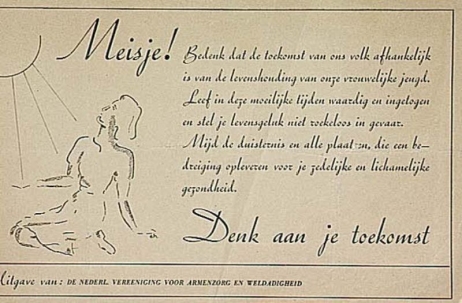 Meisje! Bedenk dat de toekomst van ons volk afhankelijk
is van de levenshouding van onze vrouwelijke jeugd.
Leef in deze moeilijke tijden waardig en ingetogen
en stel je levensgeluk niet roekeloos in gevaar.
Mijd de duisternis en alle plaatsen, die een be-
dreiging opleveren voor je zedelijke en lichamelijke
gezondheid.
Denk aan je toekomst
Uitgave van: DE NEDERL. VEREENIGING VOOR ARMENZORG EN WELDADIGHEID